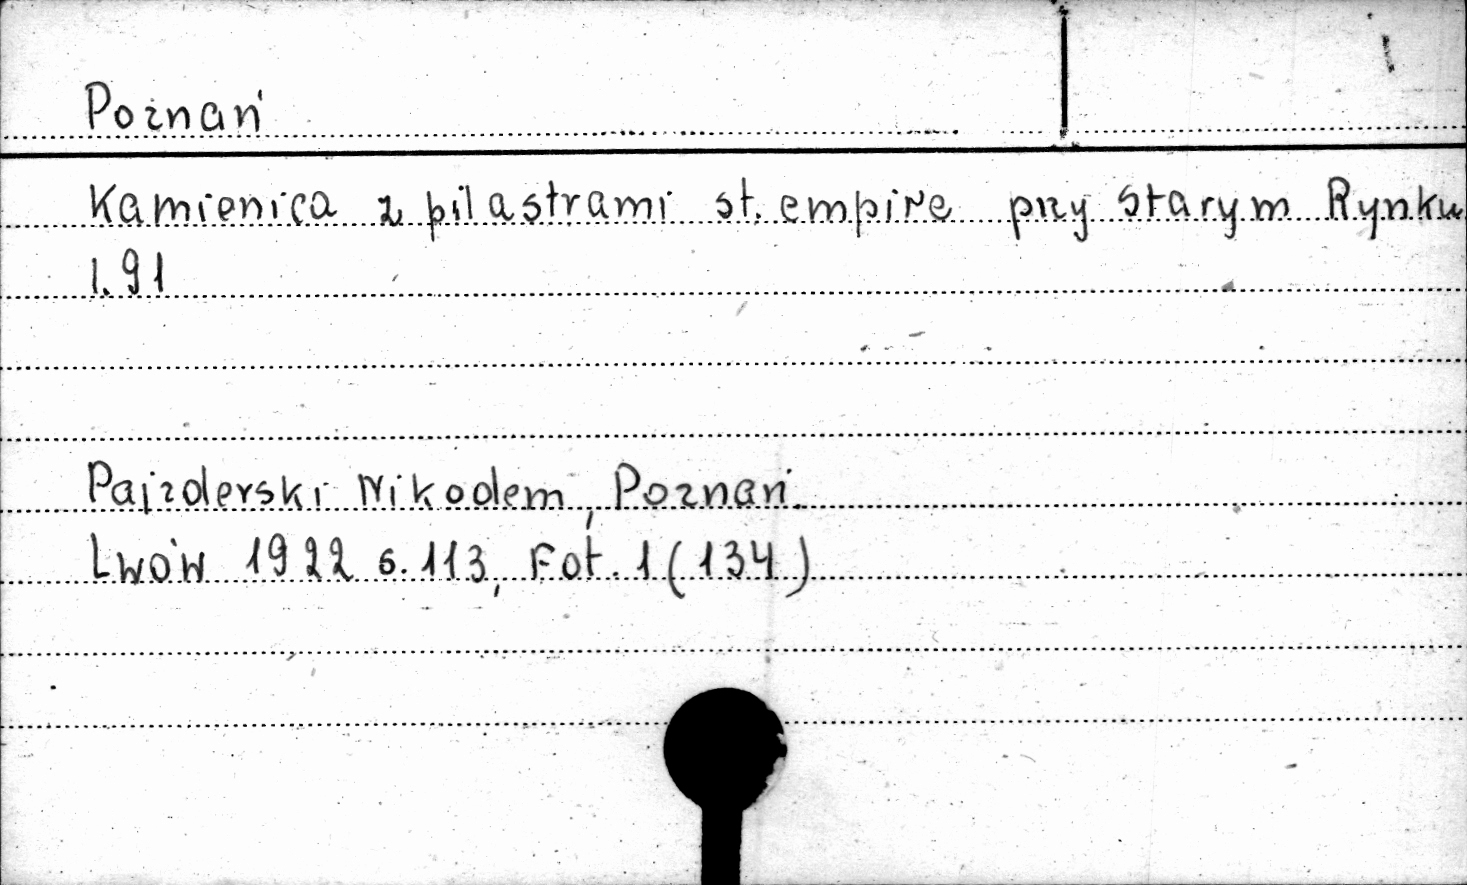 Poznań
Kamienica z pilastrami st. empire przy Starym Rynku
l. 91
Pajzderski Nikodem, Poznań.
Lwów 1922 s. 113, Fot. 1 (134)